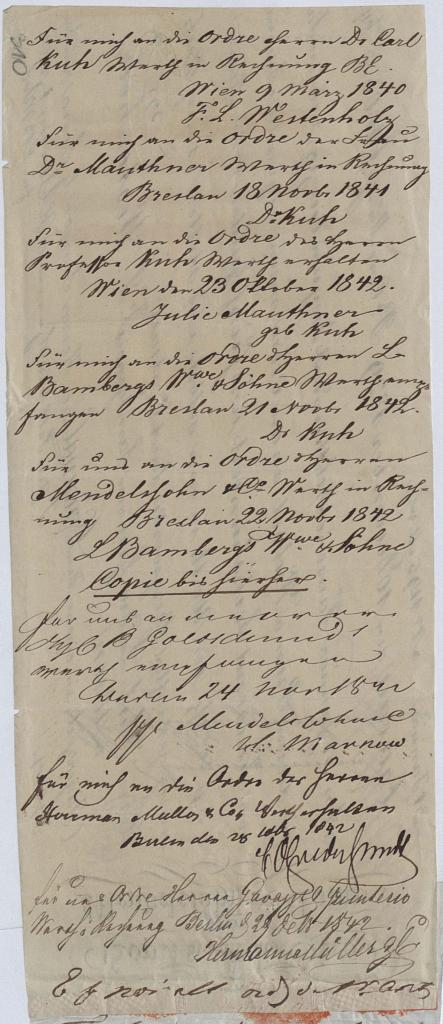 Für mich an die Ordre Herrn Dr Carl
Kuh Werth in Rechnung
Wien 9 März 1840
F. L. Westenholz
Für mich an die Ordre der Frau
Dr Mauthner Werth in Rechnung
Breslau 18 Novbr 1841
Dr Kuh
Für mich an die Ordre des Herrn
Professor Kuh Werth erhalten
Wien den 23 Oktober 1842.
Julie Mauthner
geb Kuh
Für mich an die Ordre d Herren L
Bambergs Wwe & Söhne Werth emp-
fangen Breslau 21 Novbr 1842.
Dr Kuh
Für uns an die Ordre d Herren
Mendelssohn & Co Werth in Rech-
nung Breslau 22 Novbr 1842
L Bambergs Wwe & Söhne
Copie bis hierher.
für uns an
B Goldschmidt
werth empfangen
24 Nov 1842
Mendelssohn & C
Warnow
für mich an die Ordre der Herren
Herrman Muller & Co, Werth erhalten
Berlin den 28 1842
für uns Ordre Herren
Werth i Rechnung Berlin d 29 1842.
Hermann Müller & Co